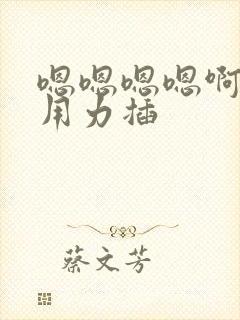 嗯嗯嗯嗯啊
用力插
蔡文芳